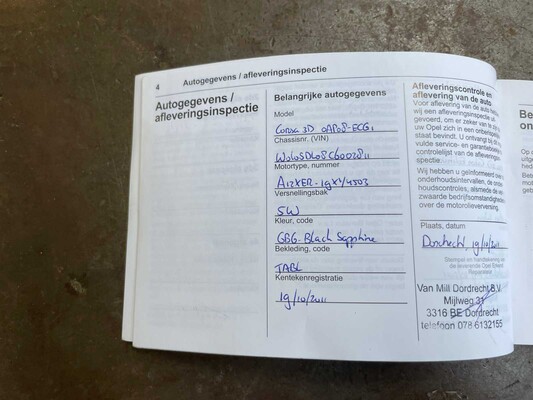 4 Autogegevens / afleveringsinspectie
Autogegevens /
afleveringsinspectie
Belangrijke autogegevens
Model
Corsa 3D 0AP08-ECG1
Chassisnr. (VIN)
Motortype, nummer
Versnellingsbak
SW
Kleur, code
GBG. Black Sapphire
Bekleding, code
TABL
Kentekenregistratie
19/10/2011
Afleveringscontrole en
aflevering van de auto
Voor aflevering van de auto
wij een afleveringsinspectie uit
gevoerd, om er zeker van te zijn
uw Opel zich in een onberispelijke
staat bevindt. U ontvangt bij
vulde service- en garantieboekje
controlelijst van de aflevering
spectie.
Wij hebben u geïnformeerd over
onderhoudsintervallen, de onder
houdscontroles, alsmede de
zwaarde bedrijfsomstandigheden
over de motorolieverversing.
Plaats, datum
Dordrecht, 19/10/2011
Stempel en handtekening van
de leverende Opel Erkend
Reparateur
Van Mill Dordrecht B.V.
Mijlweg 31
3316 BE Dordrecht
telefoon 078 6132155
Be
on
Op